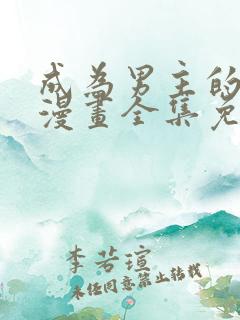 成為男主的
漫畫全集免
李若瑄
未经同意禁止转载